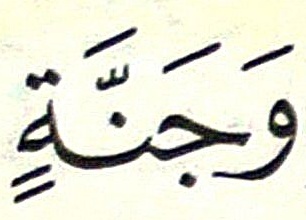 وَجَنَّةٍ